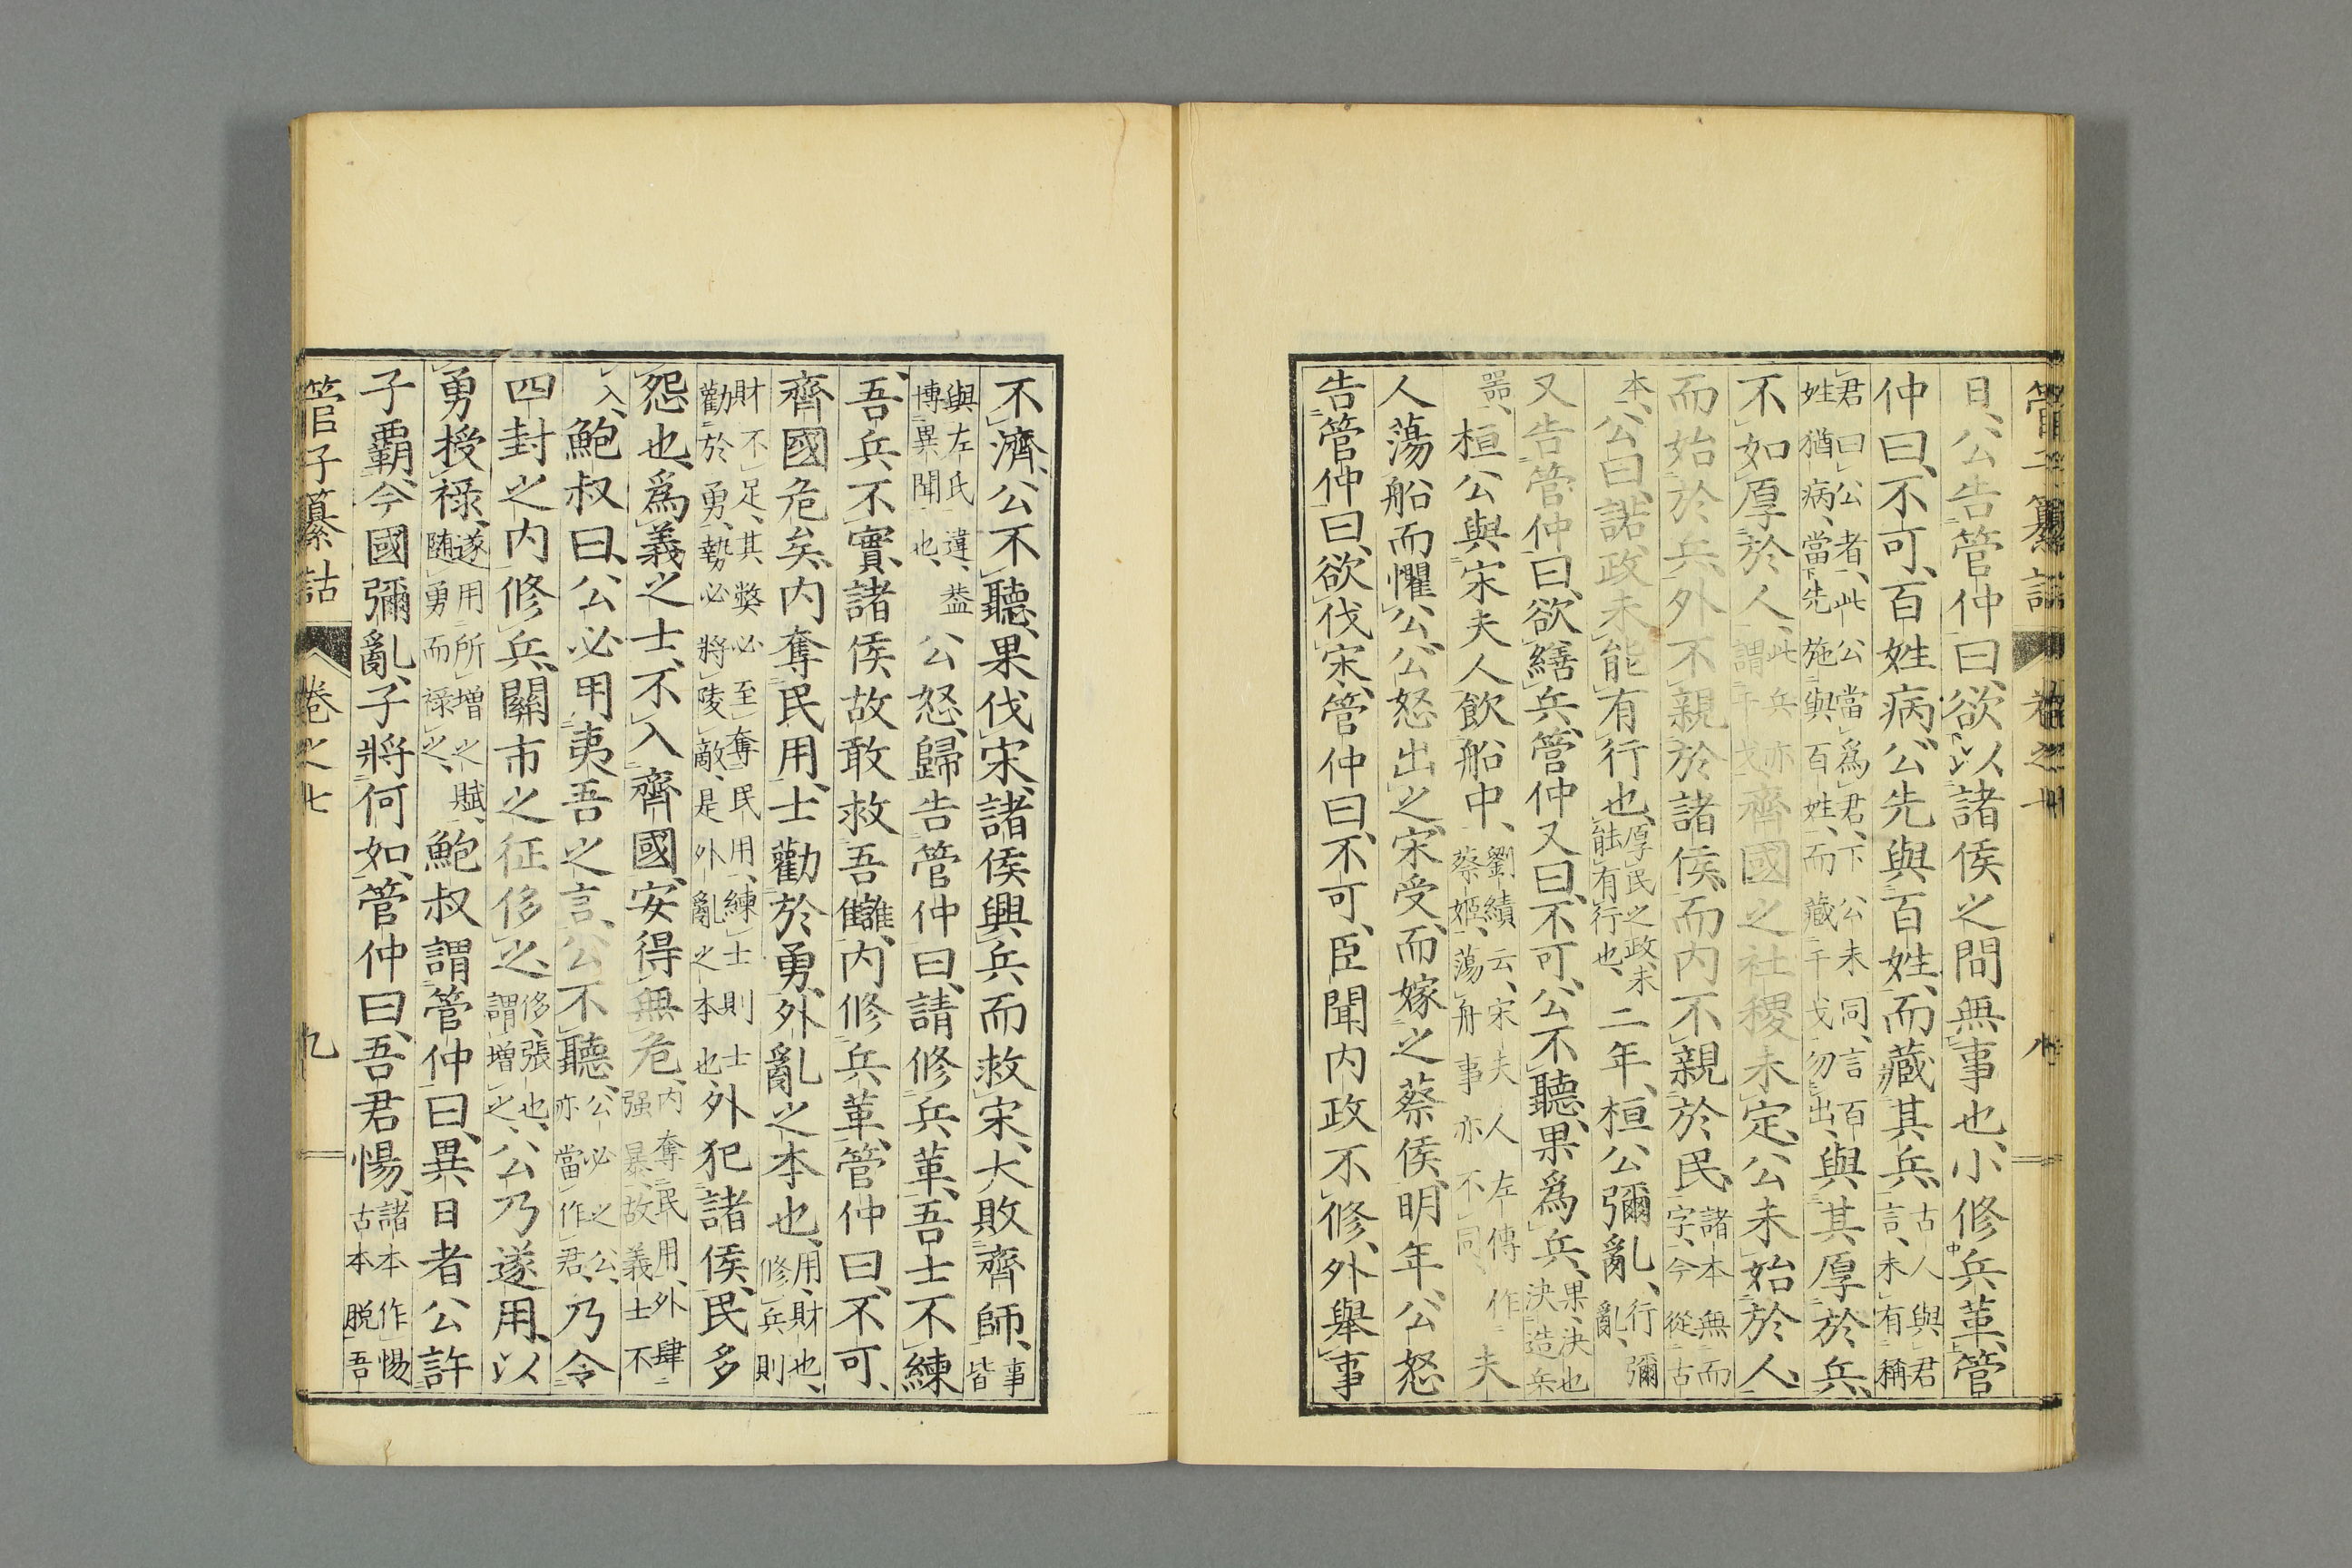 管子纂詁 卷之七 八
日、公告管仲曰、欲以諸侯之間無事也、小修兵革、管
仲曰、不可、百姓病、公先與百姓、而藏其兵、古人與君言、未有稱
君曰公者、此公當爲君、下公未同、言百姓猶病、當先施與百姓、而藏干戈勿出、與其厚於兵、
不如厚於人、此兵亦謂干戈、齊國之社稷未定、公未始於人、
而始於兵、外不親於諸侯、而内不親於民、諸本無而字、今從古
本、公曰、諾、政未能有行也、厚民之政、未能有行也、二年、桓公彌亂、行彌亂、
又告管仲曰、欲繕兵、管仲又曰、不可、公不聽、果爲兵、果、決也決造兵
器、桓公與宋夫人飲船中、劉績云、宋夫人左傳作蔡姬、蕩舟事亦不同、夫
人蕩船而懼公、公怒出之、宋受、而嫁之蔡侯、明年、公怒
告管仲曰、欲伐宋、管仲曰、不可、臣聞内政不修、外舉事
不濟、公不聽、果伐宋、諸侯興兵而救宋、大敗齊師、事皆
與左氏違、蓋博異聞也、公怒、歸告管仲曰、請修兵革、吾士不練
吾兵不實、諸侯故敢救吾讎、内修兵革、管仲曰、不可、
齊國危矣、内奪民用、士勸於勇、外亂之本也、用、財也、修兵則
財不足、其獘必至奪民用、練士則士勸於勇、勢必將陵敵、是外亂之本也、外犯諸侯、民多
怨也、爲義之士、不入齊國、安得無危、内奪民用、外肆强暴、故義士不
入、鮑叔曰、公必用夷吾之言、公不聽、公必之公、亦當作君、乃令
四封之内修兵、關市之征侈之、侈、張也、謂增之、公乃遂用以
勇授祿、遂用所增之賦、隨勇而祿之、鮑叔謂管仲曰、異日者公許
子霸、今國彌亂、子將何如、管仲曰、吾君惕、諸本作惕古本脱吾
管子纂詁 卷之七 九